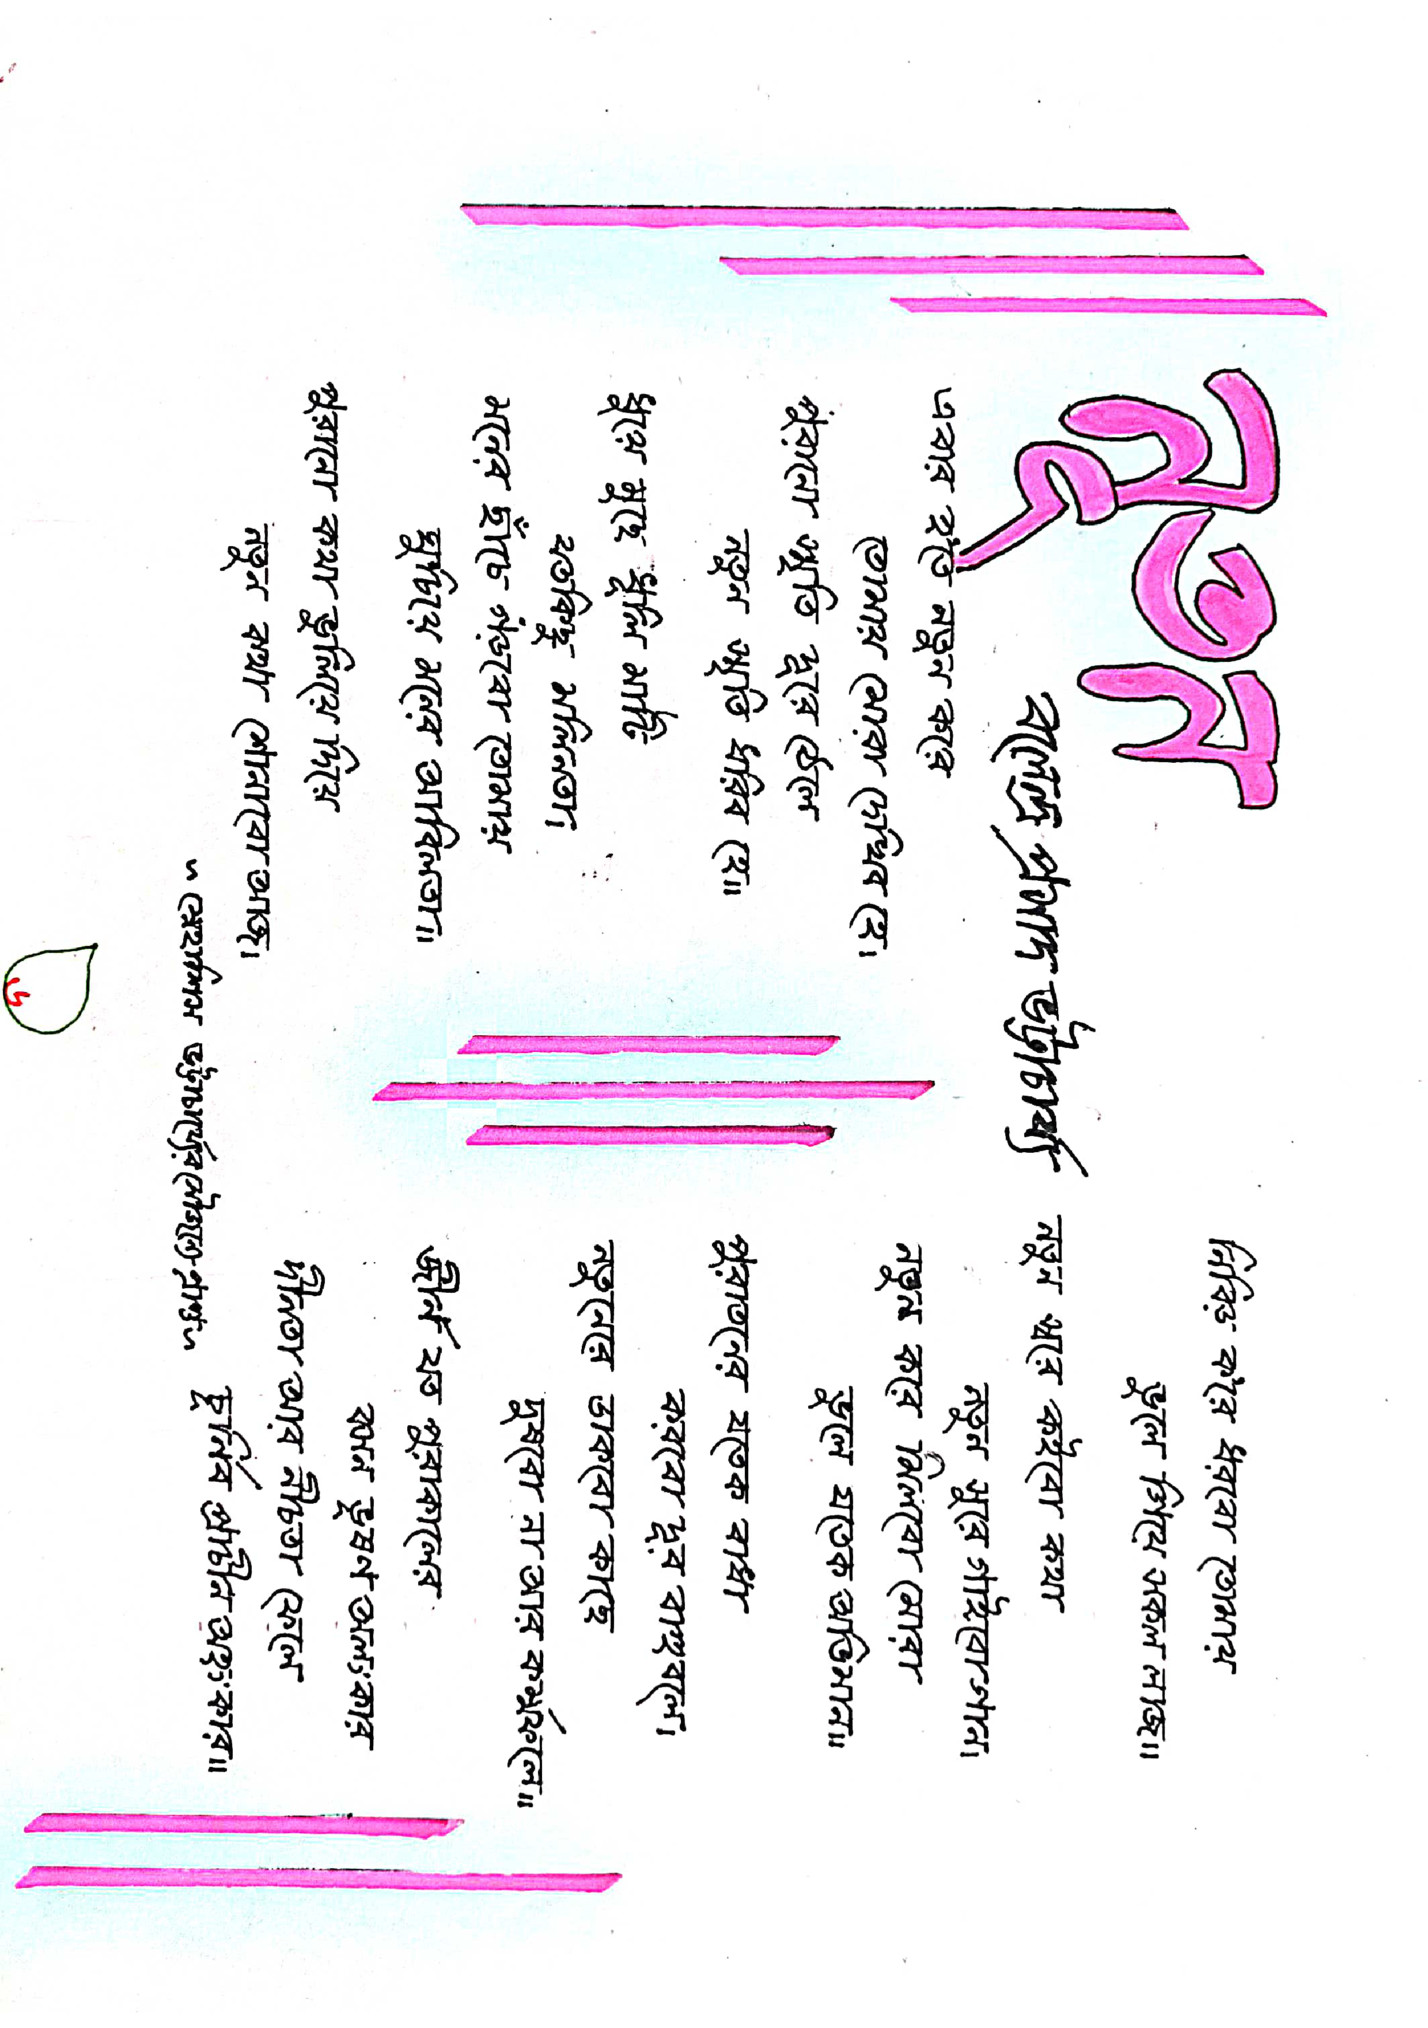 নূতন
বালেন্দ্র প্রসাদ ভট্টাচার্য্য
এবার হ'তে নতুন করে
তোমায় মোরা দেখিব হে।
পুরানো স্মৃতি দূরে ঠেলে
নতুন স্মৃতি ধরিব হে॥
ধুয়ে মুছে ধূলি মাটি
যতকিছু মলিনতা,
মনের ছাঁচে গড়বো তোমায়
ঘুচিয়ে মনের আবিলতা॥
পুরানো কথা ভুলিয়ে দিয়ে
নতুন কথা শোনাবো আজ।
নিবিড় ক'রে ধরবো তোমায়
ভুলে গিয়ে সকল লাজ॥
নতুন স্বরে কইবো কথা
নতুন সুরে গাইবো গান।
নতুন করে মিলবো মোরা
ভুলে যতেক অভিমান॥
পুরাতনের যতেক বাধা
করবো দূর বাহুবলে।
নতুনের ডাকবো কাছে
দূষবো না আর কর্মফলে॥
জীর্ন যত পুরাকালের
বসন ভূষন অলঙ্কার
দীনতা আর নীচতা ফেলে
চূর্নিব প্রাচীন অহংকার॥
ভট্টাচার্য্যের সৌজন্যে প্রাপ্ত
৮